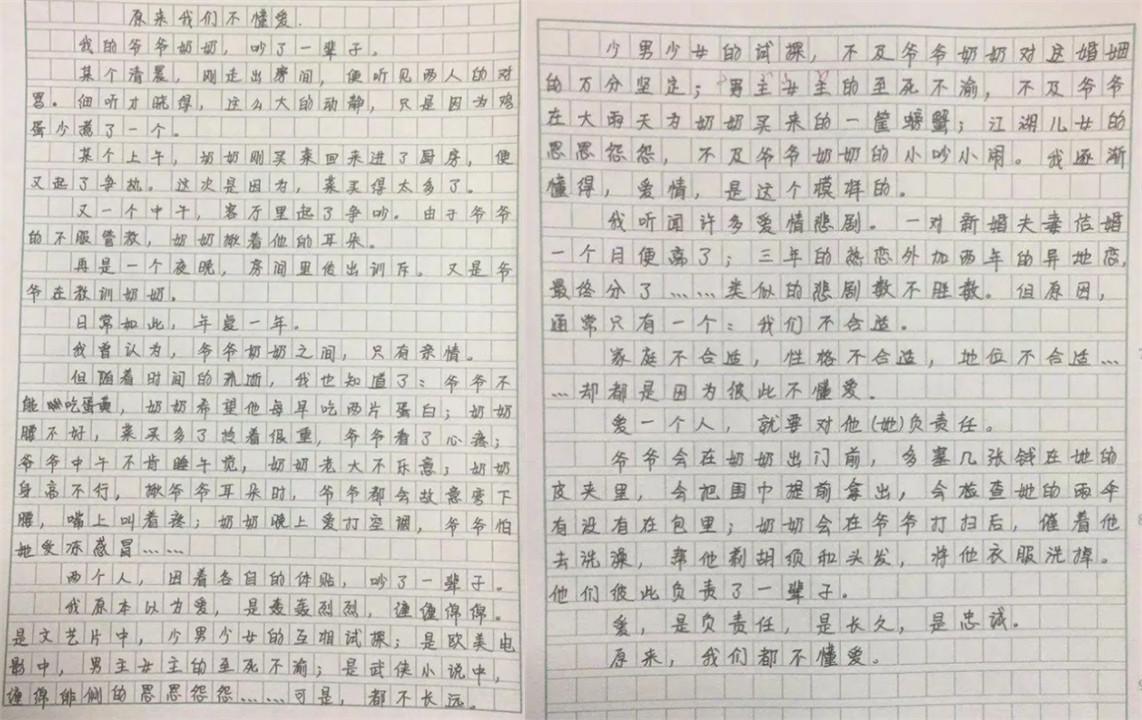 原来我们不懂爱.
我的爷爷奶奶，吵了一辈子。
某个清晨，刚走出房间，便听见两人的对
骂。细听才晓得，这么大的动静，只是因为鸡
蛋少煮了一个。
某个上午，奶奶刚买菜回来进了厨房，便
又起了争执。这次是因为，菜买得太多了。
又一个中午，客厅里起了争吵。由于爷爷
的不服管教，奶奶揪着他的耳朵。
再是一个夜晚，房间里传出训斥。又是爷
爷在教训奶奶。
日常如此，年复一年。
我曾认为，爷爷奶奶之间，只有亲情。
但随着时间的流逝，我也知道了：爷爷不
能吃蛋黄，奶奶希望他每早吃两片蛋白；奶奶
腰不好，菜买多了拎着很重，爷爷看了心疼；
爷爷中午不肯睡午觉，奶奶老大不乐意；奶奶
身高不行，揪爷爷耳朵时，爷爷都会故意弯下
腰，嘴上叫着疼；奶奶晚上爱打空调，爷爷怕
她受冻感冒……
两个人，因着各自的体贴，吵了一辈子。
我原本以为爱，是轰轰烈烈，缠缠绵绵。
是文艺片中，少男少女的互相试探；是欧美电
影中，男主女主的至死不渝；是武侠小说中，
缠绵悱恻的恩恩怨怨……可是，都不长远。
少男少女的试探，不及爷爷奶奶对这婚姻
的万分坚定；男主女主的至死不渝，不及爷爷
在大雨天为奶奶买来的一筐螃蟹；江湖儿女的
恩恩怨怨，不及爷爷奶奶的小吵小闹。我逐渐
懂得，爱情，是这个模样的。
我听闻许多爱情悲剧。一对新婚夫妻结婚
一个月便离了；三年的热恋外加两年的异地恋，
最终分了……类似的悲剧数不胜数。但原因，
通常只有一个：我们不合适。
家庭不合适，性格不合适，地位不合适…
…却都是因为彼此不懂爱。
爱一个人，就要对他(她)负责任。
爷爷会在奶奶出门前，多塞几张钱在她的
皮夹里，会把围巾提前拿出，会检查她的雨伞
有没有在包里；奶奶会在爷爷打扫后，催着他
去洗澡，帮他剃胡须和头发，将他衣服洗掉。
他们彼此负责了一辈子。
爱，是负责任，是长久，是忠诚。
原来，我们都不懂爱。